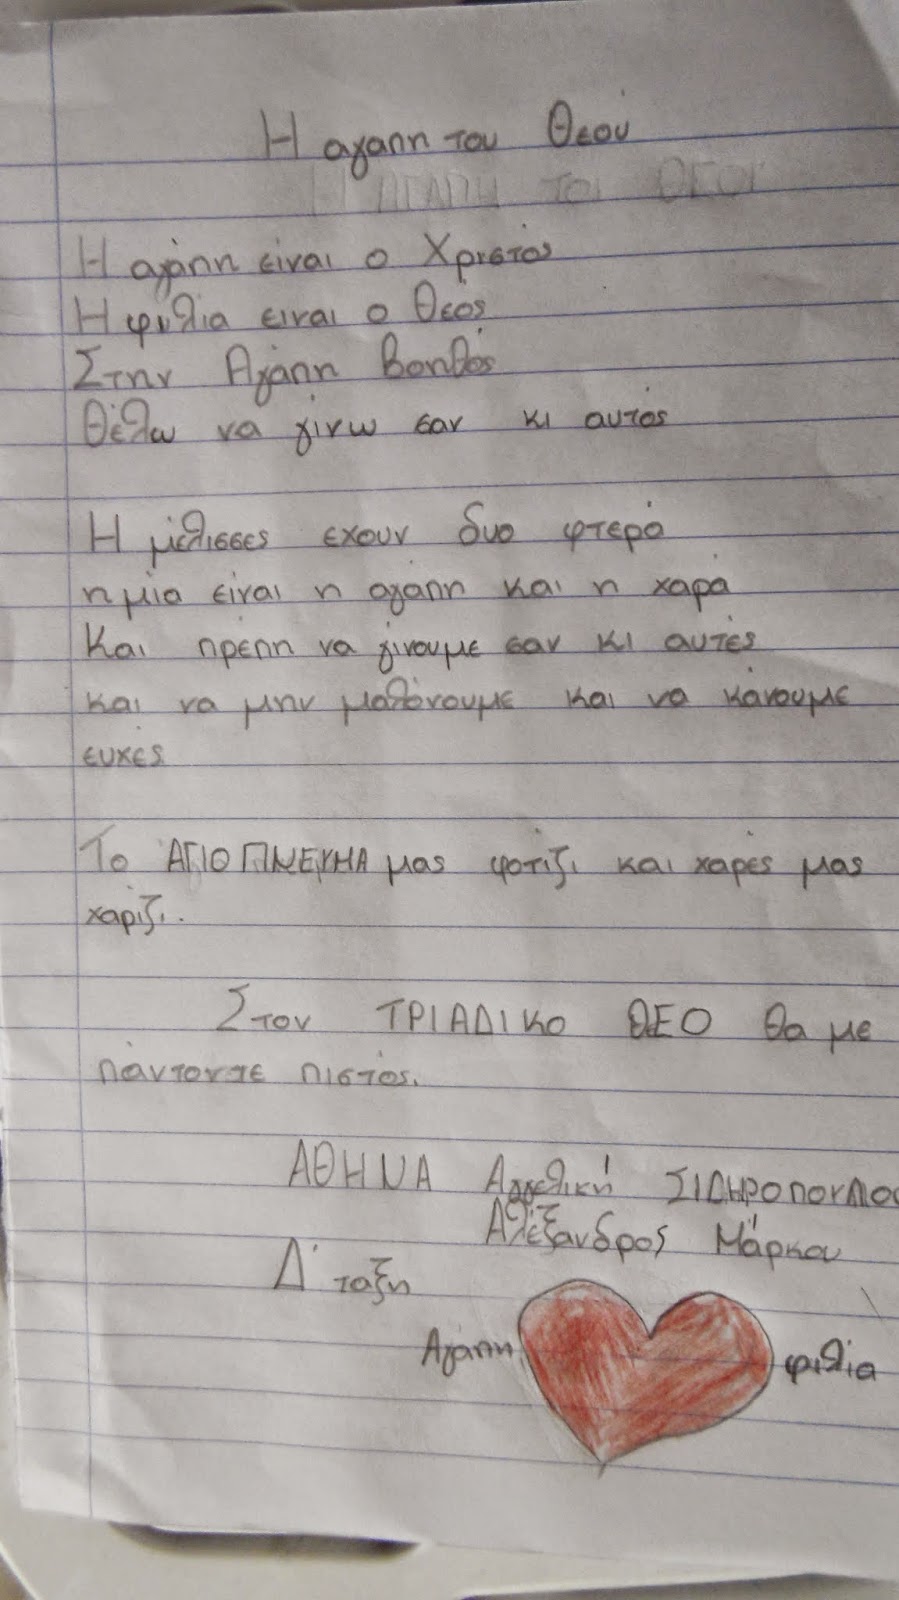 Η αγαπη του Θεού
Η ΑΓΑΠΗ ΤΟΥ ΘΕΟΥ
Η αγάπη είναι ο Χριστός
Η φιλία ειναι ο Θεός
Στην Αγάπη Βοηθός
Θέλω να γίνω σαν κι αυτός
Η μέλισσες εχουν δυο φτερά
η μία είναι η αγάπη και η χαρά
Και πρέπη να γίνουμε σαν κι αυτές
και να μην μαλόνουμε και να κάνουμε
ευχές
Το ΑΓΙΟ ΠΝΕΥΜΑ μας φοτίζι και χαρές μας
χαρίζι.
Στον ΤΡΙΑΔΙΚΟ ΘΕΟ θα με
πάντοντε πιστός.
ΑΘΗΝΑ Αγγελική ΣΙΔΗΡΟΠΟΥΛΟ
Αλέξανδρος Μάρκου
Δ΄ ταξη
Αγάπη φιλία